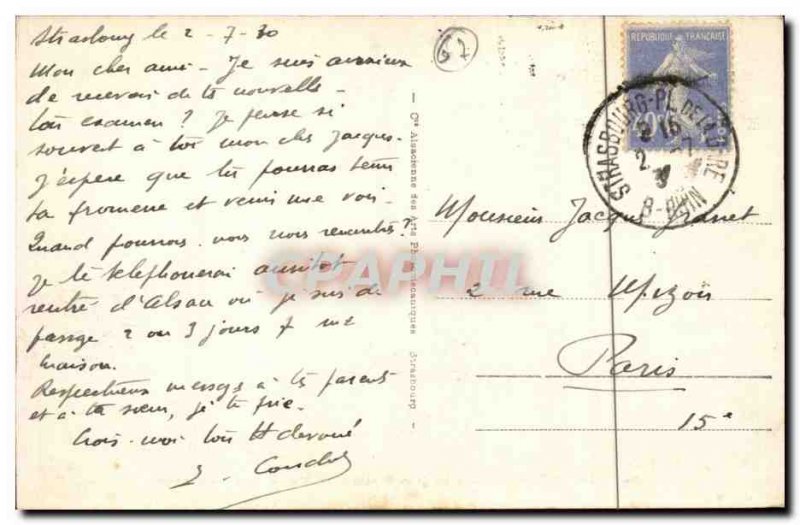 Strasbourg le 2-7-30
Mon cher ami - Je suis anxieux
de recevoir de ts nouvelle -
ton examen ? Je pense si
souvet à toi mon cher Jacques -
J'espère que tu pourras tenir
ta promene et venir me voir -
Quand pourrons-nous nous rencontrer ?
Je te telephonerai aussitot
rentré d'Alsace ou je suis de
passage 2 ou 3 jours
maison.
Respectueux à ts parents
et à ta sœur, je te prie -
Crois-moi ton tt devoué
Cie Alsacienne des Arts Photomécaniques Strasbourg
REPUBLIQUE FRANÇAISE
STRASBOURG-PL. DE LA GARE
B-RHIN
Monsieur Jacques
2 rue Mizon
Paris
15e
CPAPHIL